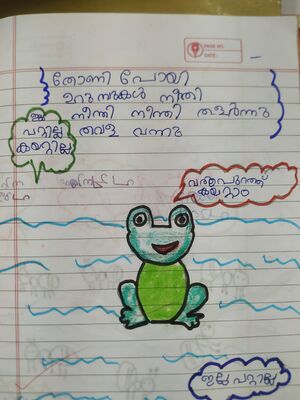 PAGE NO.
DATE:
തോണി പോയി
ഉറുമ്പുകൾ നീന്തി
നീന്തി നീന്തി തളർന്നു
തവള വന്നു
പറ്റില്ല
കയറില്ല
വരൂ പുറത്ത്
കയറാം
ഇല്ല പറ്റില്ല